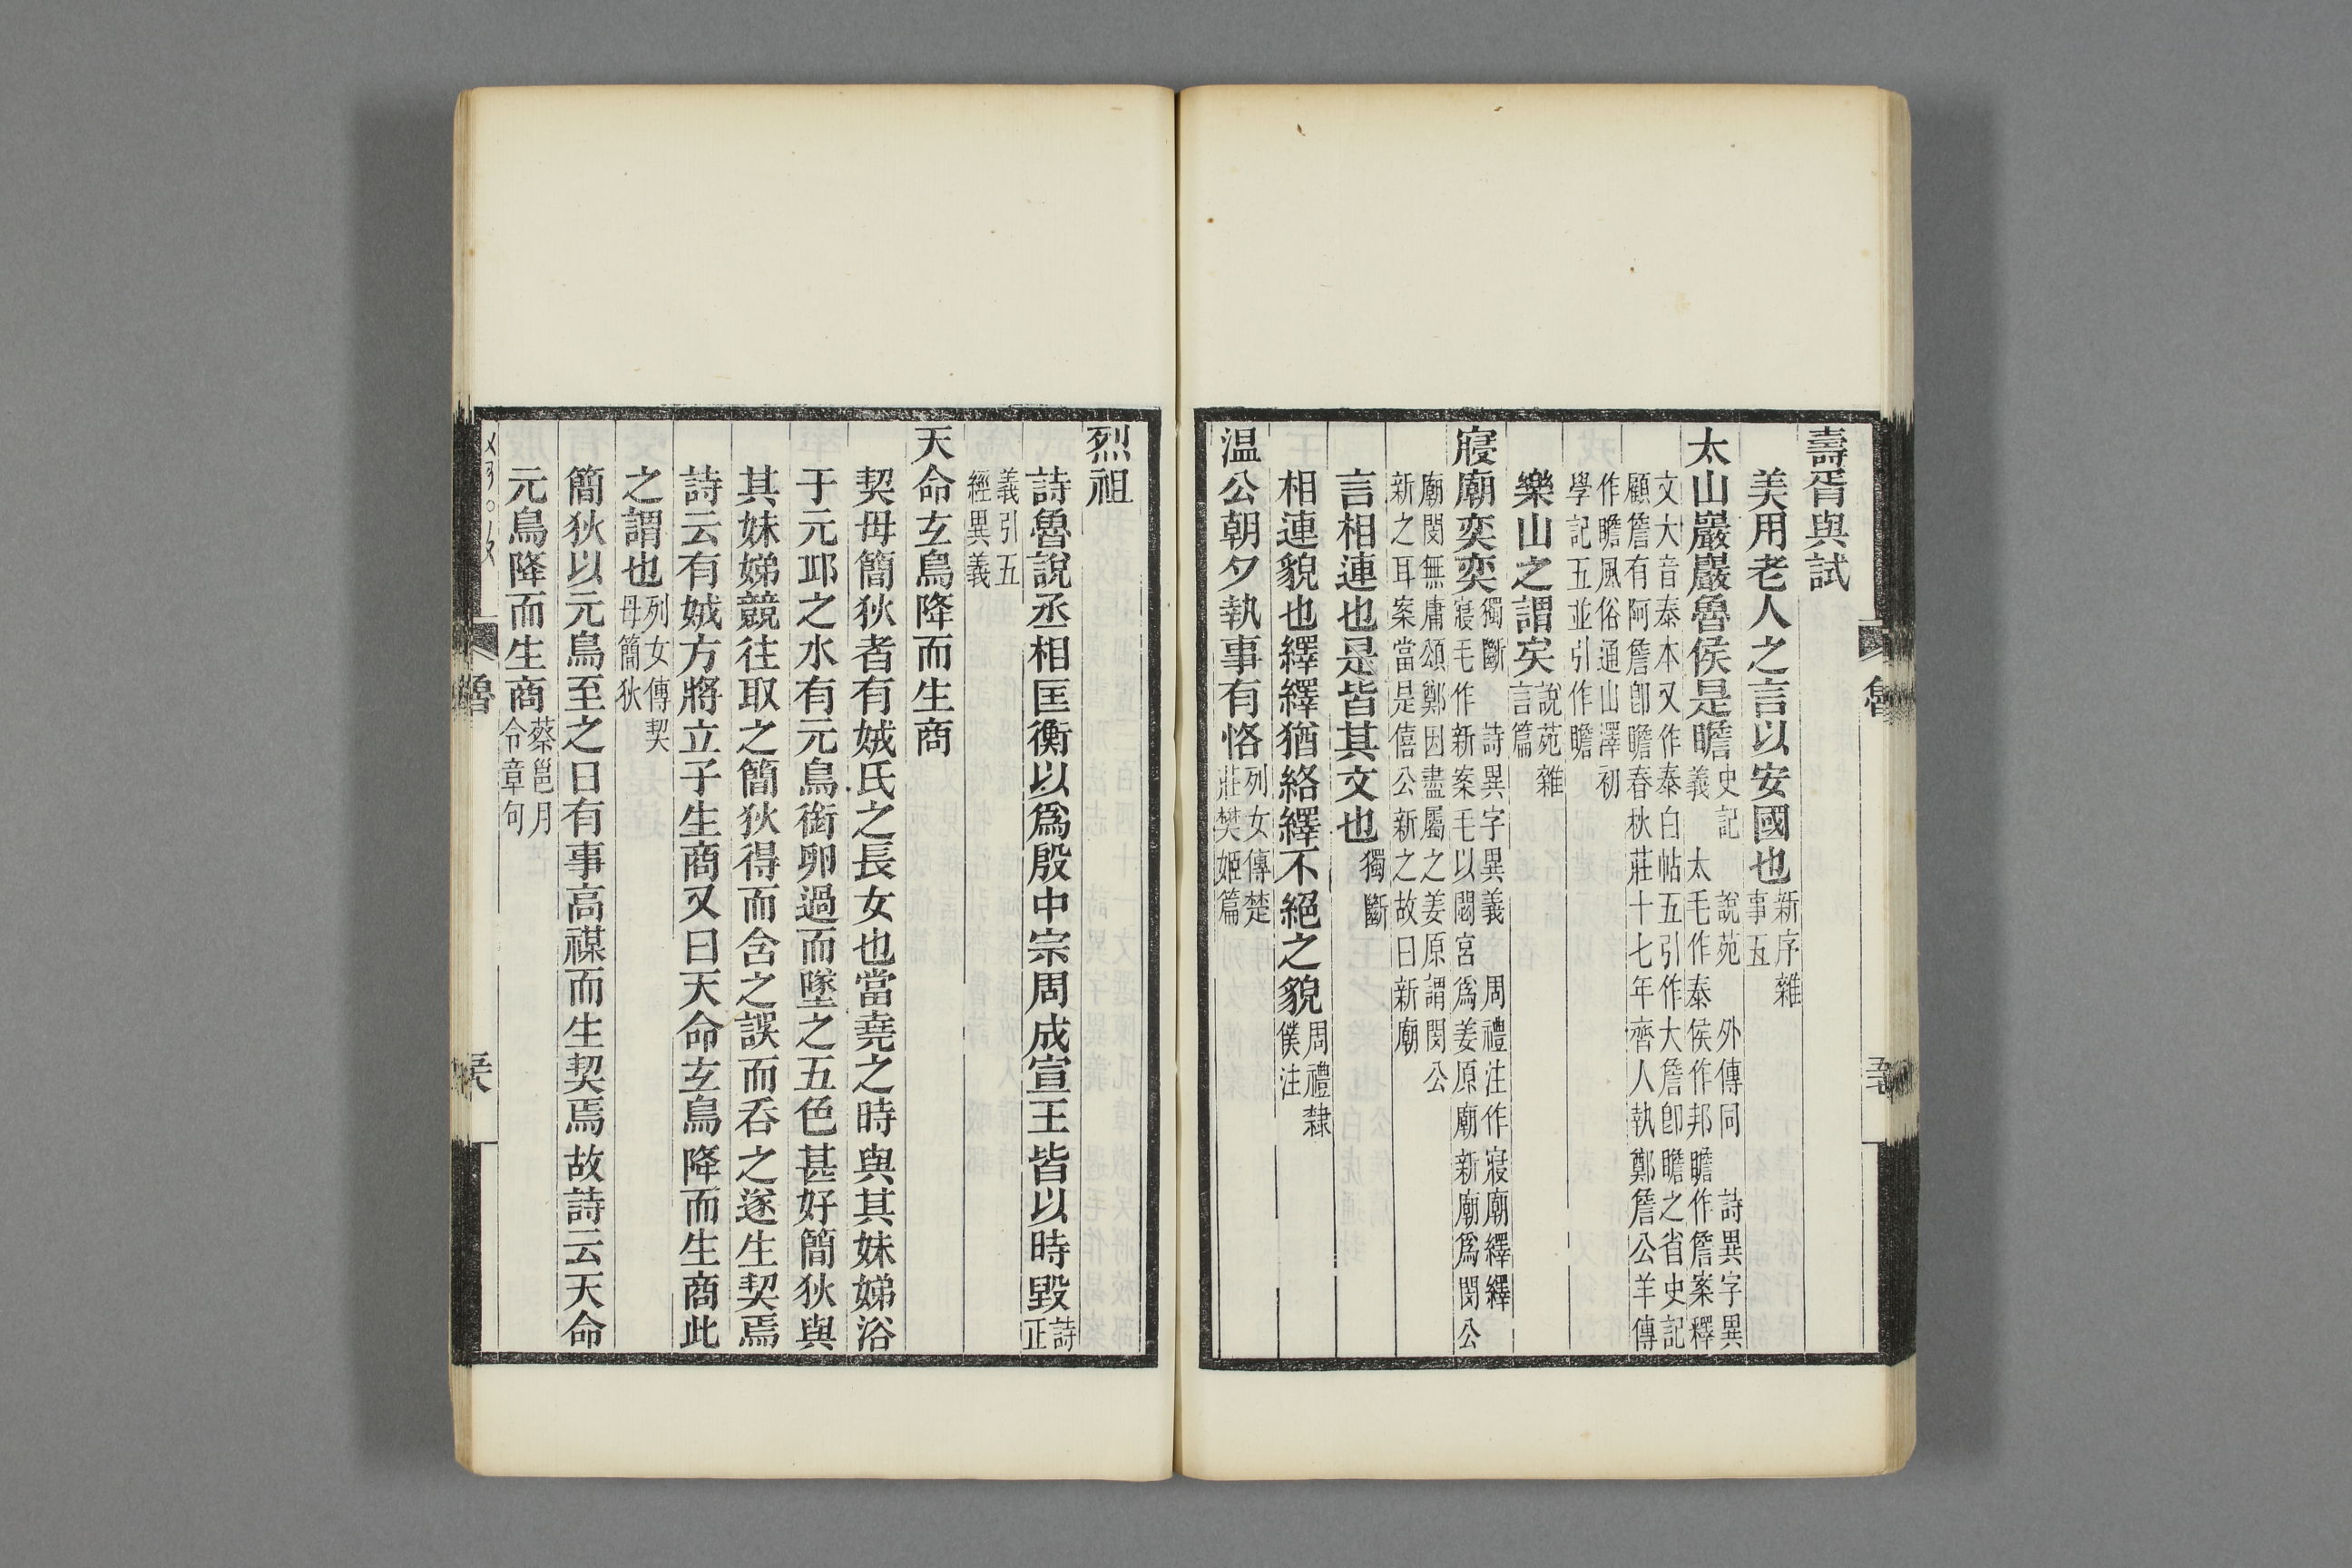 壽胥與試
美用老人之言以安國也新序雜事五
太山巖巖魯侯是瞻史記 說苑 外傳同 詩異字異義 太毛作泰侯作邦瞻作詹案釋
文大音泰本又作泰白帖五引作大詹卽瞻之省史記
顧詹有阿詹卽瞻春秋莊十七年齊人執鄭詹公羊傳
作瞻風俗通山澤初
學記五並引作瞻
樂山之謂矣說苑雜言篇
寢廟奕奕獨斷 詩異字異義 周禮注作寢廟繹繹寢毛作新案毛以閟宮爲姜原廟新廟爲閔公
廟閔無庸頌鄭因盡屬之姜原謂閔公
新之耳案當是僖公新之故曰新廟
言相連也是皆其文也獨斷
相連貌也繹繹猶絡繹不絕之貌周禮隸僕注
温公朝夕執事有恪列女傳楚莊樊姬篇
烈祖
詩魯說丞相匡衡以爲殷中宗周成宣王皆以時毀詩正
義引五
經異義
天命玄鳥降而生商
契母簡狄者有娀氏之長女也當堯之時與其妹娣浴
于元邱之水有元鳥銜卵過而墜之五色甚好簡狄與
其妹娣競往取之簡狄得而含之誤而吞之遂生契焉
詩云有娀方將立子生商又曰天命玄鳥降而生商此
之謂也列女傳契母簡狄
簡狄以元鳥至之日有事高禖而生契焉故詩云天命
元鳥降而生商蔡邕月令章句
魯